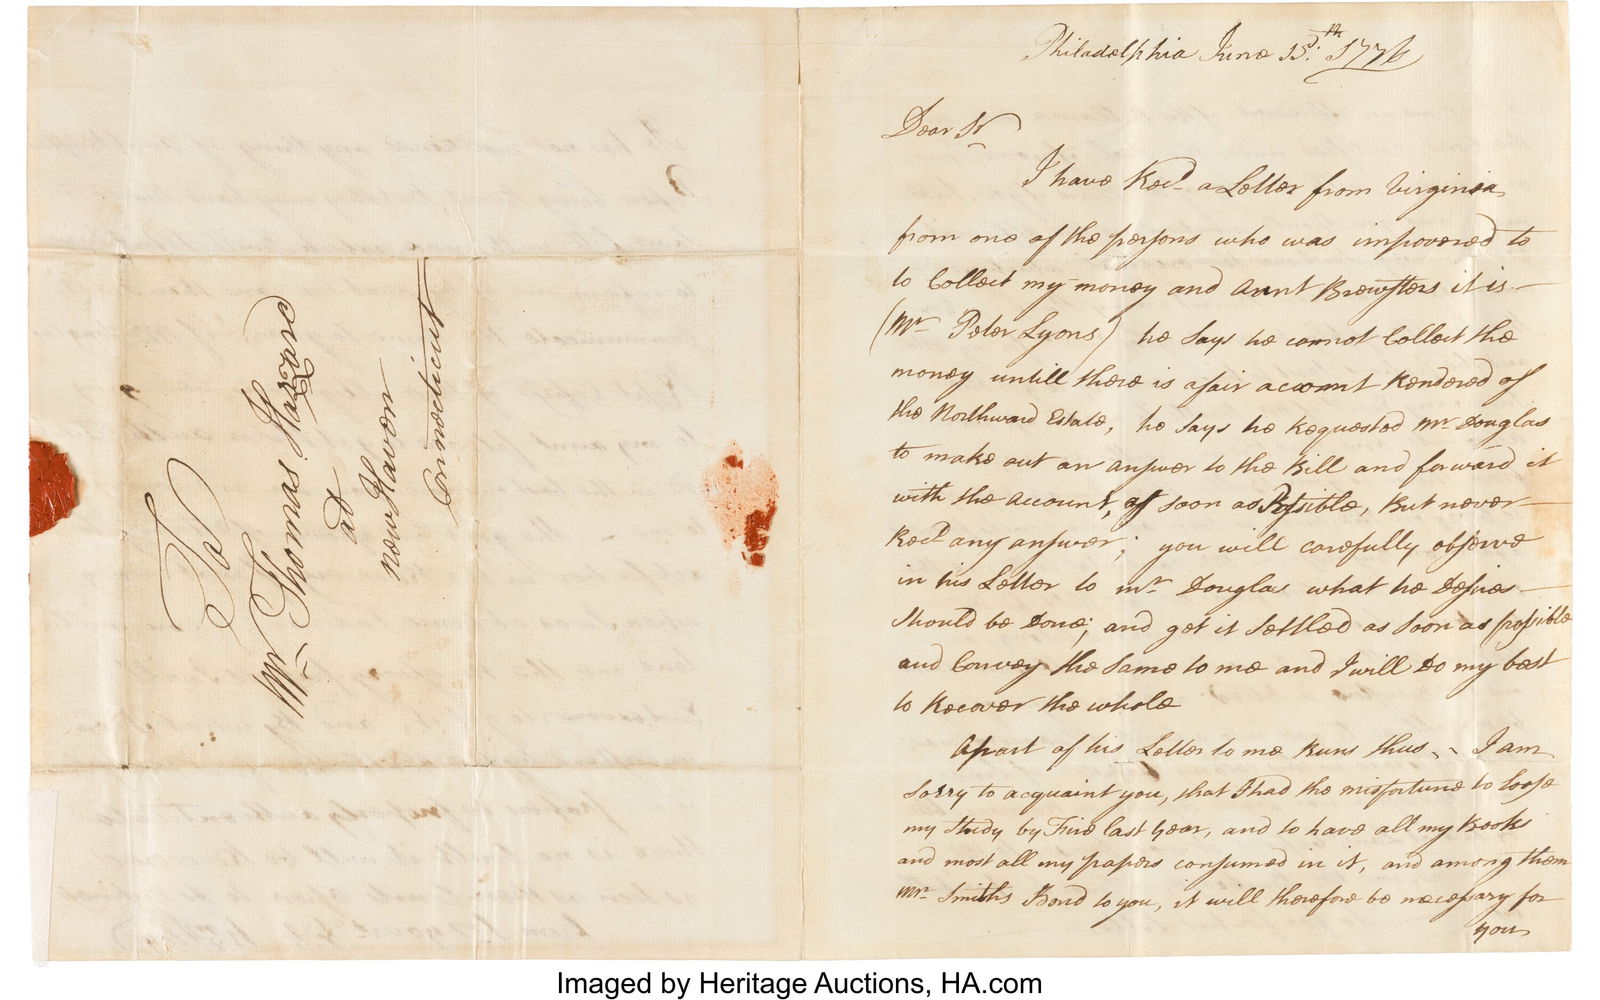 To
Mr Thomas Hazard
at
new Haven
Connecticut
Philadelphia June 15th: 1776
Dear Sr
I have Recd a Letter from Virginia
from one of the persons who was impowered to
to Collect my money and Aunt Brewsters it is
(Mr Peter Lyons) he says he cannot Collect the
money untill there is a fair account Rendered of
the Northward Estate, he says he Requested Mr Douglas
to make out an answer to the Bill and forward it
with the account, as soon as Possible, But never
Recd any answer; you will carefully observe
in his Letter to Mr Douglas what he Desires
should be Done; and get it settled as soon as possible
and Convey the same to me and I will Do my best
to Recover the whole
A part of his Letter to me Runs thus I am
sorry to acquaint you, that I had the misfortune to loose
my Study by Fire last year, and to have all my Books
and most all my papers consumed in it, and among them
Mr Smiths Bond to you, it will therefore be necessary for
you
Imaged by Heritage Auctions, HA.com